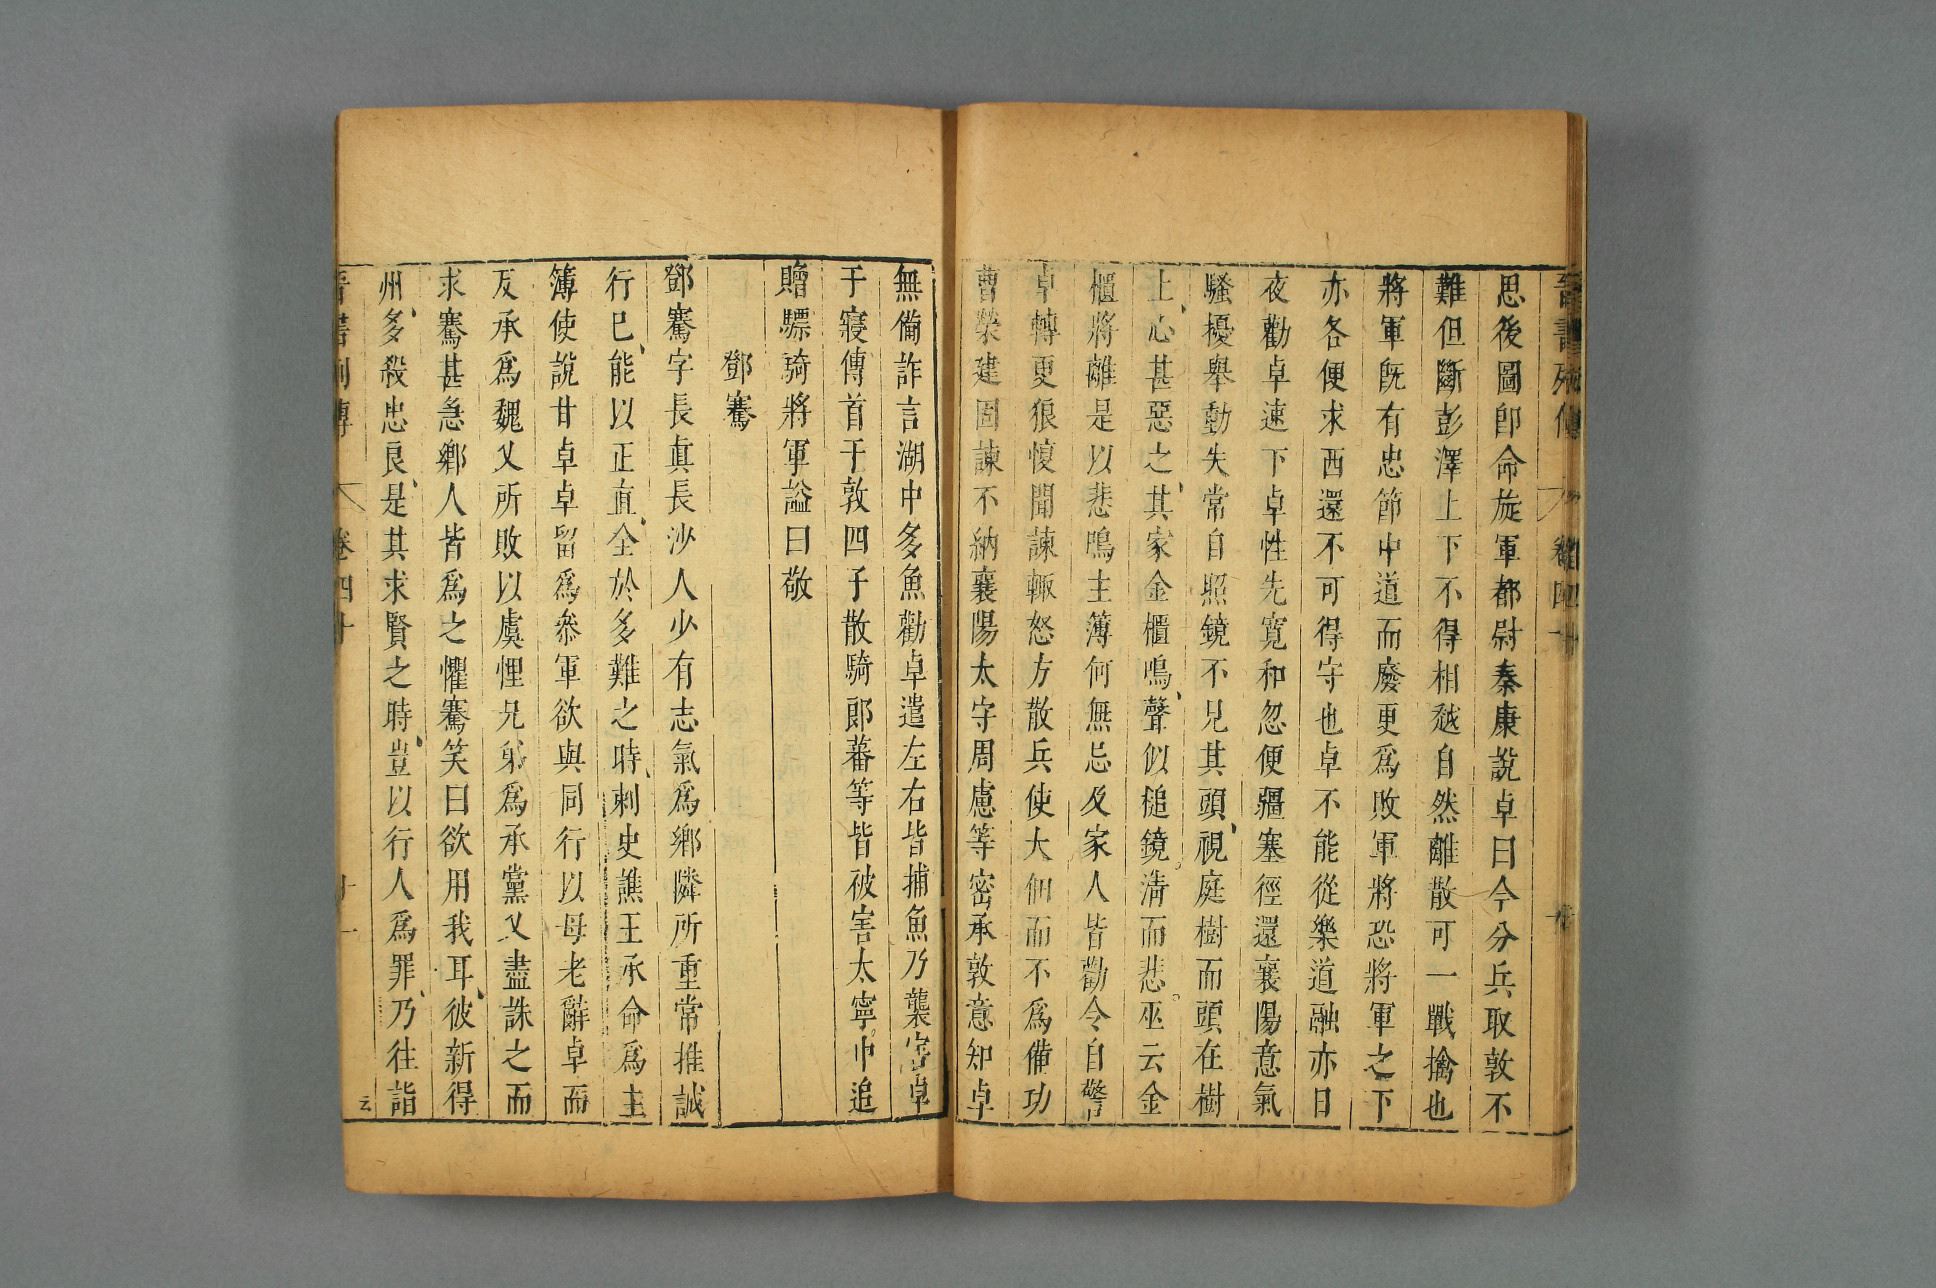 晉書列傳 卷四十
思後圖卽命旋軍都尉秦康說卓曰今分兵取敦不
難但斷彭澤上下不得相越自然離散可一戰擒也
將軍旣有忠節中道而廢更爲敗軍將恐將軍之下
亦各便求西還不可得守也卓不能從樂道融亦日
夜勸卓速下卓性先寬和忽便疆塞徑還襄陽意氣
騷擾舉動失常自照鏡不見其頭視庭樹而頭在樹
上心甚惡之其家金櫃鳴聲似槌鏡淸而悲巫云金
櫃將離是以悲鳴主簿何無忌及家人皆勸令自警
卓轉更狠愎聞諫輒怒方散兵使大佃而不爲備功
曹榮建固諫不納襄陽太守周慮等密承敦意知卓
無備詐言湖中多魚勸卓遣左右皆捕魚乃襲害卓
于寢傳首于敦四子散騎郎蕃等皆被害太寧中追
贈驃騎將軍謚曰敬
鄧騫
鄧騫字長眞長沙人少有志氣爲鄉隣所重常推誠
行已能以正直全於多難之時刺史譙王承命爲主
簿使說甘卓卓留爲叅軍欲與同行以母老辭卓而
反承爲魏乂所敗以虞悝兄弟爲承黨乂盡誅之而
求騫甚急鄉人皆爲之懼騫笑曰欲用我耳彼新得
州多殺忠良是其求賢之時豈以行人爲罪乃往詣
晉書列傳 卷四十